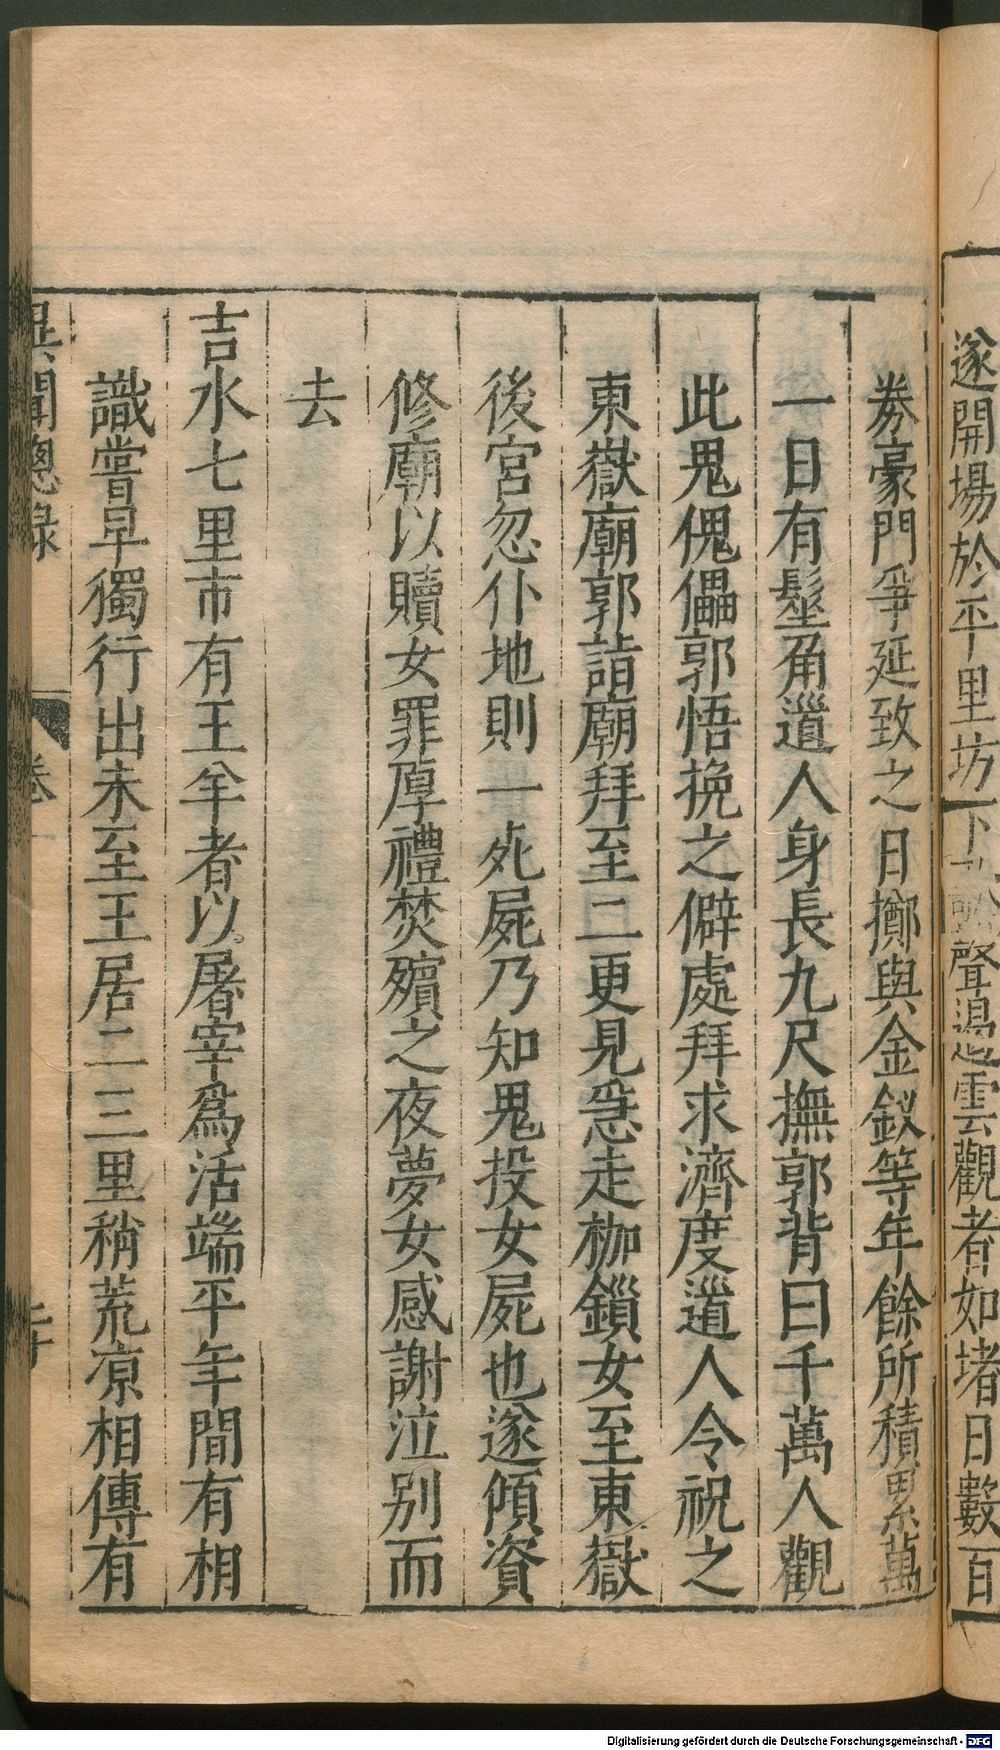 遂開場於平里坊下歌聲遏雲觀者如堵日數百
券豪門爭延致之日擲與金釵等年餘所積累萬
一日有髽角道人身長九尺撫郭背曰千萬人觀
此鬼傀儡郭悟挽之僻處拜求濟度道人令祝之
東嶽廟郭詣廟拜至二更見急走枷鎖女至東嶽
後宮忽仆地則一死屍乃知鬼投女屍也遂傾資
修廟以贖女罪厚禮焚殯之夜夢女感謝泣别而
去
吉水七里市有王羊者以屠宰爲活端平年間有相
識嘗早獨行出未至王居二三里稍荒凉相傳有
異聞總錄 卷一
Digitalisierung gefördert durch die Deutsche Forschungsgemeinschaft - DFG